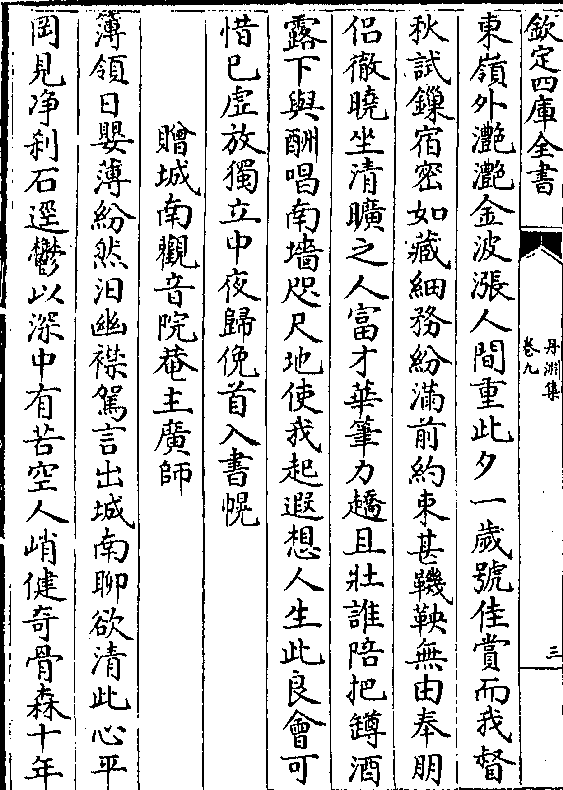 欽定四庫全書
丹淵集
卷九
三
東嶺外灔灔金波漲人間重此夕一歲號佳賞而我督
秋試鏁宿密如藏細務紛滿前約束甚羈鞅無由奉朋
侣徹曉坐清曠之人富才華筆力趫且壯誰陪把罇酒
露下與酬唱南墻咫尺地使我起遐想人生此良會可
惜已虚放獨立中夜歸俛首入書幌
贈城南觀音院菴主廣師
簿領日嬰薄紛然汨幽襟駕言出城南聊欲清此心平
岡見净刹石逕鬱以深中有苦空人峭健奇骨森十年